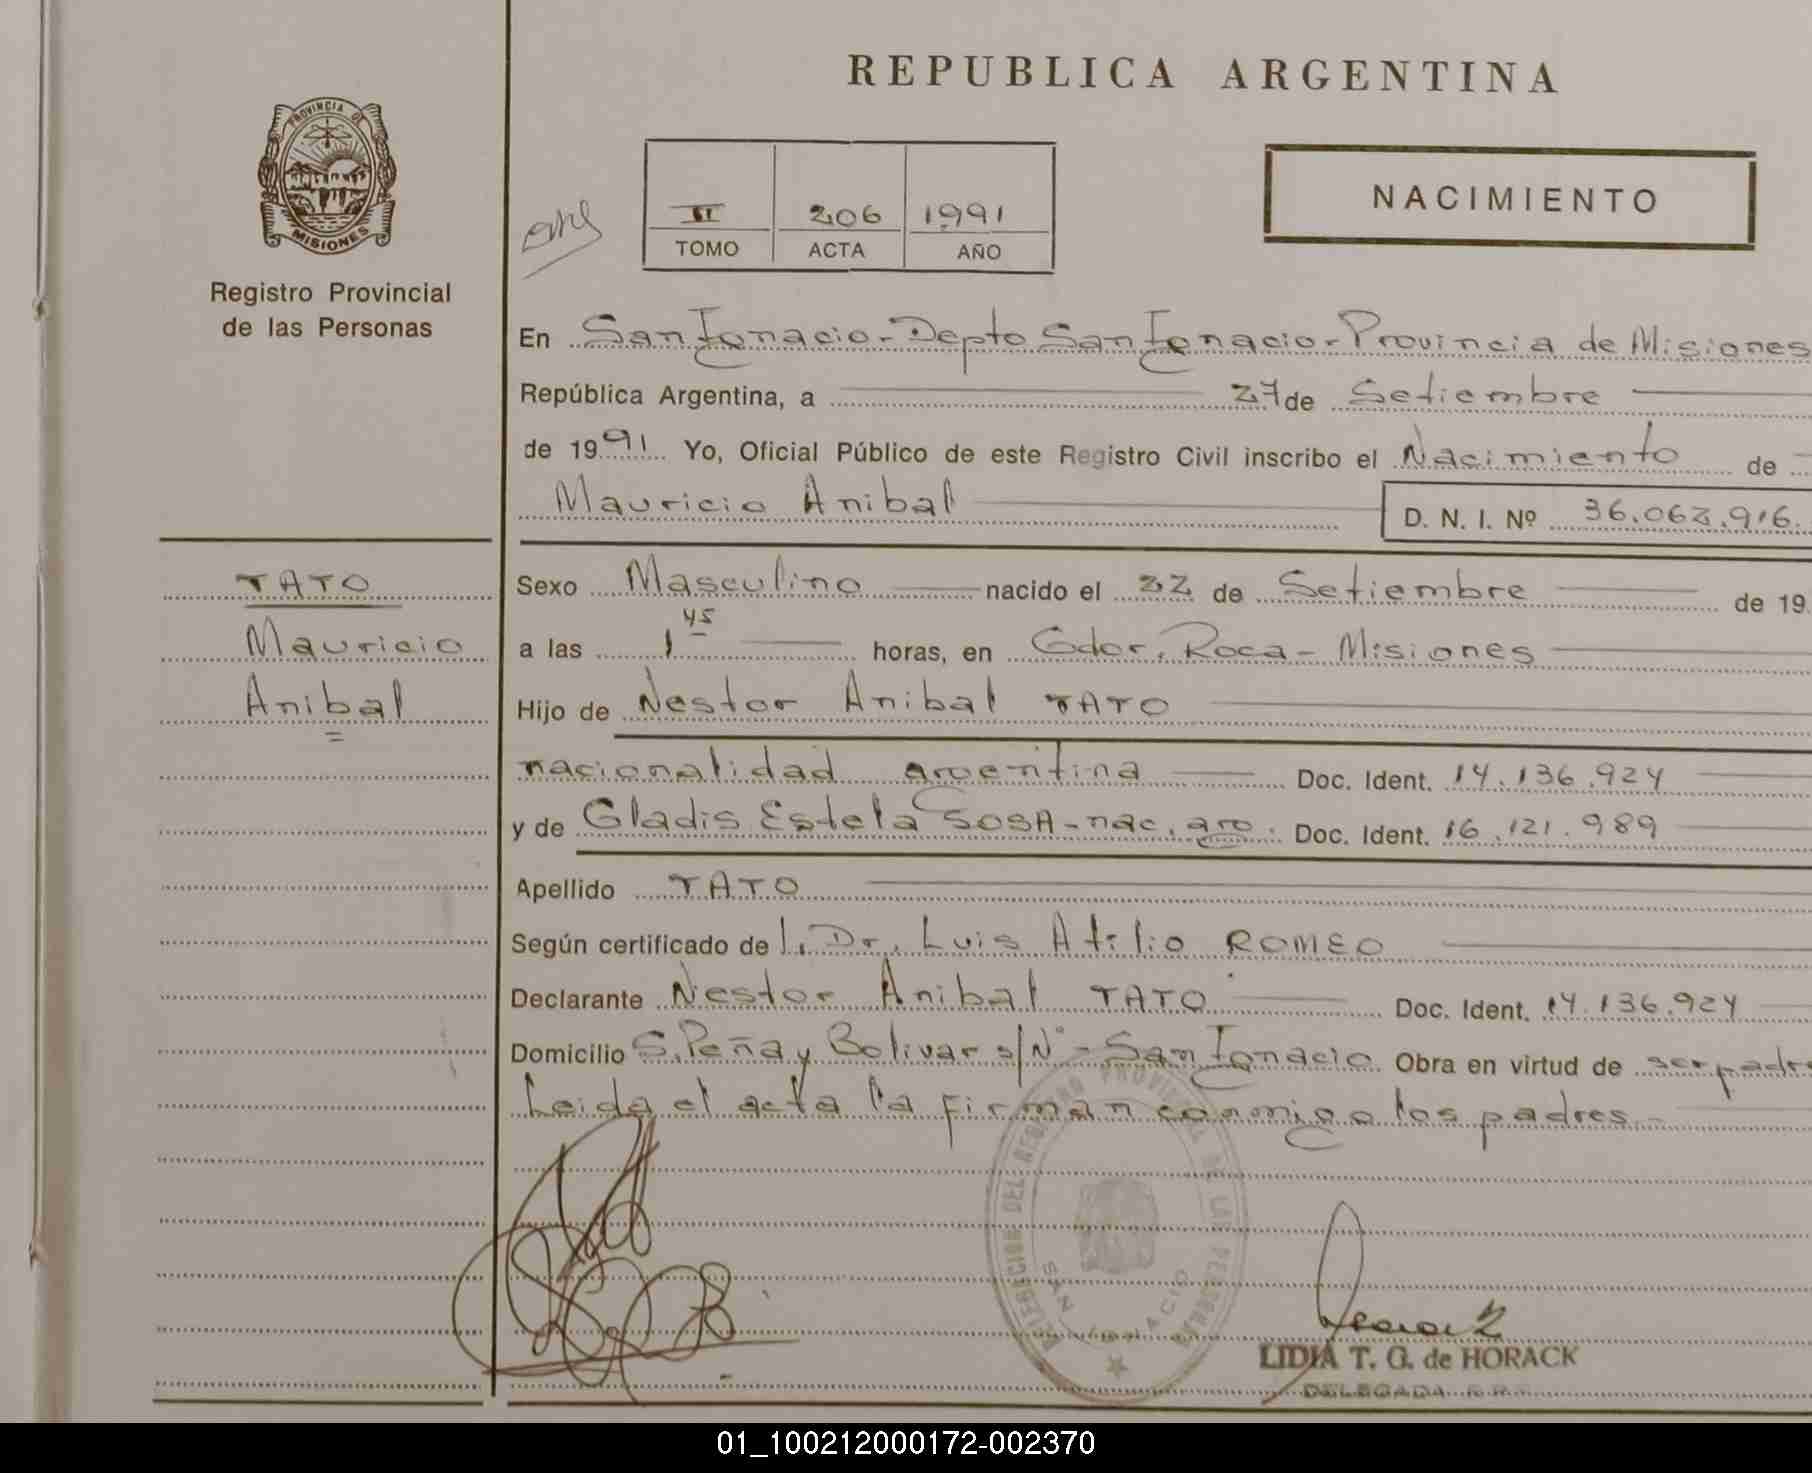 REPUBLICA ARGENTINA
PROVINCIA DE
MISIONES
Registro Provincial
de las Personas
II 206 1991
TOMO ACTA AÑO
NACIMIENTO
En San Ignacio - Depto San Ignacio - Provincia de Misiones
República Argentina, a 27 de Setiembre
de 1991 Yo, Oficial Público de este Registro Civil inscribo el Nacimiento de
Mauricio Anibal D. N. I. Nº 36.062.916.
TATO
Mauricio
Anibal
Sexo Masculino nacido el 22 de Setiembre de 19
a las 1 45 horas, en Gdor. Roca - Misiones
Hijo de Nestor Anibal TATO
nacionalidad argentina Doc. Ident. 14.136.924
y de Gladis Estela SOSA - nac. arg. Doc. Ident. 16.121.989
Apellido TATO
Según certificado de l. Dr. Luis Atilio ROMEO
Declarante Nestor Anibal TATO Doc. Ident. 14.136.924
Domicilio S. Peña y Bolivar s/Nº - San Ignacio Obra en virtud de ser padre
Leida el acta la firman conmigo los padres.-
DELEGACION DEL REGISTRO PROVINCIAL DE LAS PERSONAS
SAN IGNACIO
LIDIA T. G. de HORACK
DELEGADA R.P.P.
01_100212000172-002370